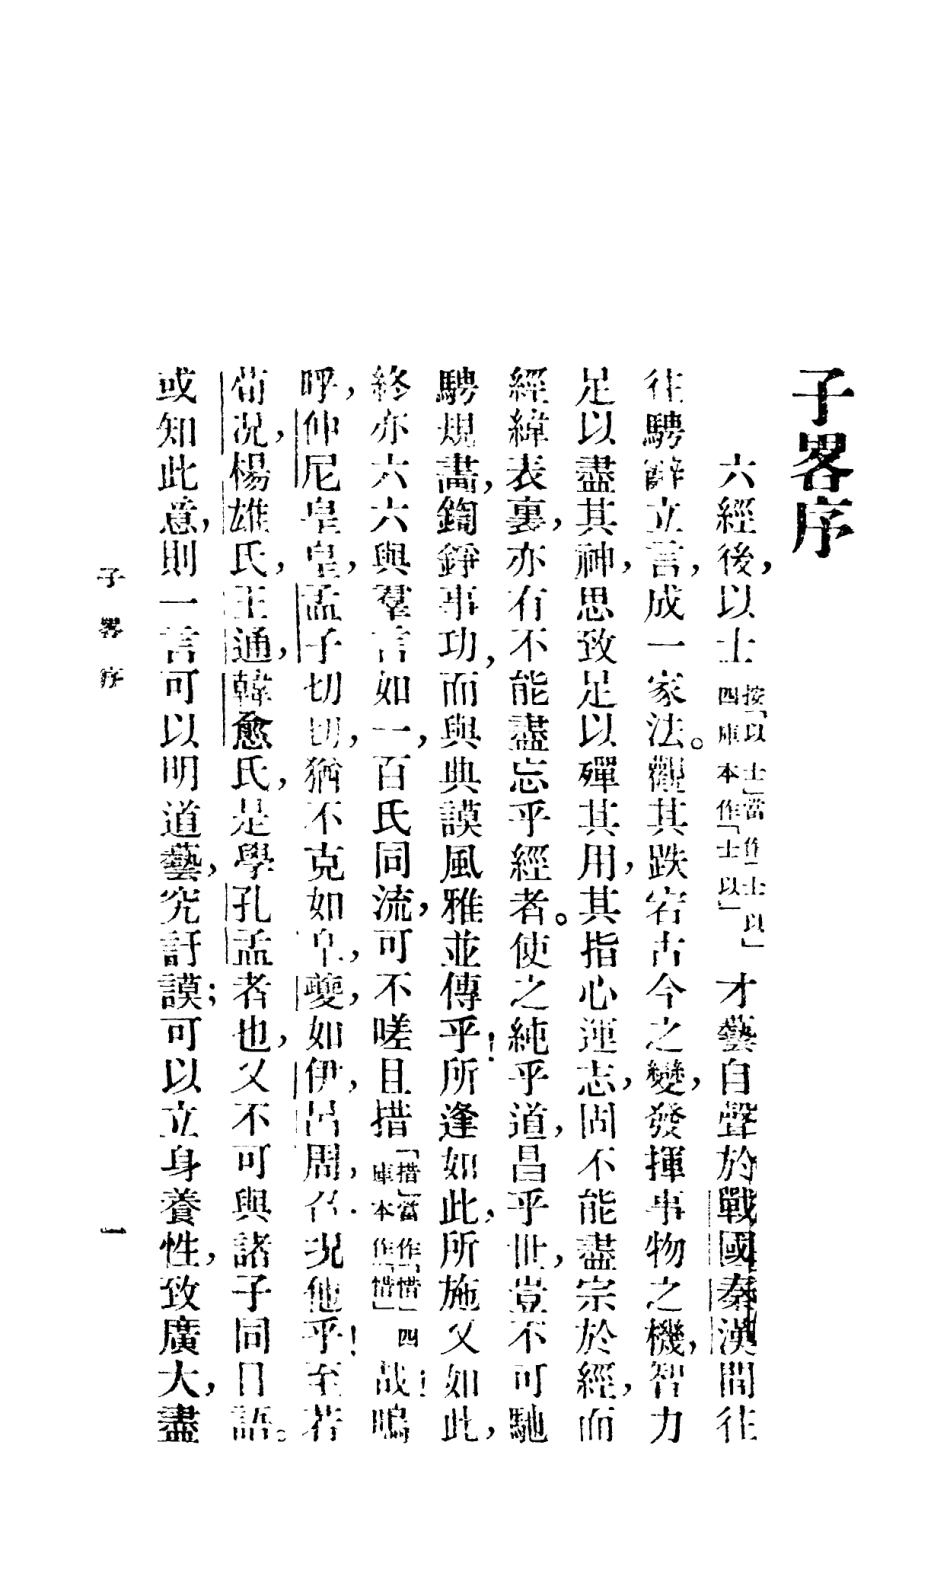 子畧序
六經後，以士按「以士」當作「士以」四庫本作「士以」才藝自聲於戰國秦漢間往
往騁辭立言，成一家法。觀其跌宕古今之變，發揮事物之機，智力
足以盡其神，思致足以殫其用，其指心運志，固不能盡宗於經，而
經緯表裏，亦有不能盡忘乎經者。使之純乎道，昌乎世，豈不可馳
騁規畫，鍧錚事功，而與典謨風雅並傳乎！所逢如此，所施又如此，
終亦六六與羣言如一，百氏同流，可不嗟且措「措」當作「惜」四庫本作「惜」哉！嗚
呼，仲尼皇皇，孟子切切，猶不克如皐，夔，如伊，呂周，召，況他乎！至若
荀況，楊雄氏，王通，韓愈氏，是學孔孟者也，又不可與諸子同日語。
或知此意，則一言可以明道藝，究訏謨；可以立身養性，致廣大，盡
子畧序
一